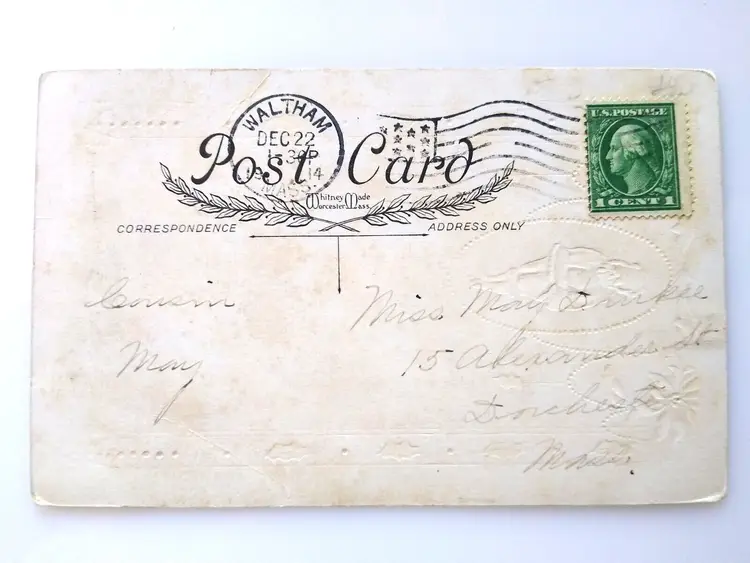 WALTHAM
DEC 22
1-30P
19 14
MASS.
Post Card
Whitney Made
Worcester Mass.
U.S. POSTAGE
1 CENT 1
CORRESPONDENCE
ADDRESS ONLY
Cousin
May
Miss May
15 Alexander St
Dorchester
Mass.